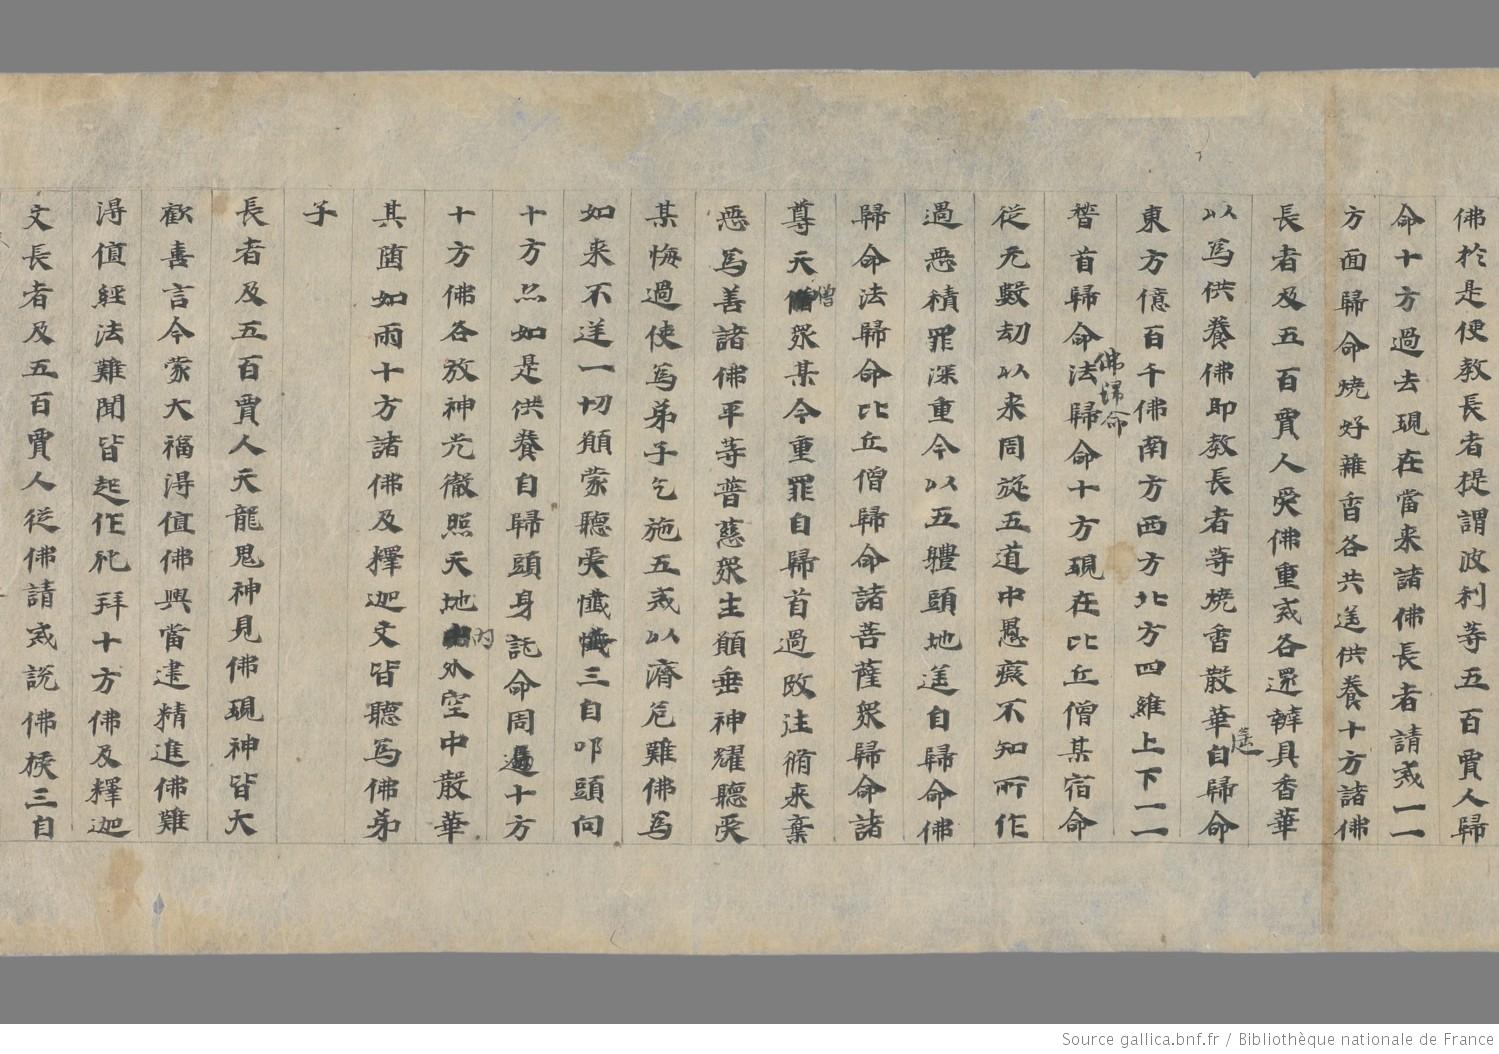 佛於是便教長者提謂波利等五百賈人歸
命十方過去現在當来諸佛長者請戒一一
方面歸命燒好雜香各共遥供養十方諸佛
長者及五百賈人受佛重戒各還辦具香華
以為供養佛即教長者等燒香散華遥自歸命
東方億百千佛南方西方北方四維上下一一
稽首歸命佛歸命法歸命十方現在比丘僧某宿命
從无數劫以来周旋五道中愚癡不知所作
過惡積罪深重今以五體頭地遥自歸命佛
歸命法歸命比丘僧歸命諸菩薩眾歸命諸
尊天僧眾某今重罪自歸首過改往脩来棄
惡為善諸佛平等普慈眾生願垂神耀聽受
某悔過使為弟子乞施五戒以濟危難佛為
如来不逆一切願蒙聽受懺悔三自叩頭向
十方亦如是供養自歸頭身託命周遍十方
十方佛各放神光徹照天地内外空中散華
其墮如雨十方諸佛及釋迦文皆聽為佛弟
子
長者及五百賈人天龍鬼神見佛現神皆大
歡喜言今蒙大福得值佛興當建精進佛難
得值經法難聞皆起作礼拜十方佛及釋迦
文長者及五百賈人從佛請戒說佛候三自
Source gallica.bnf.fr / Bibliothèque nationale de France